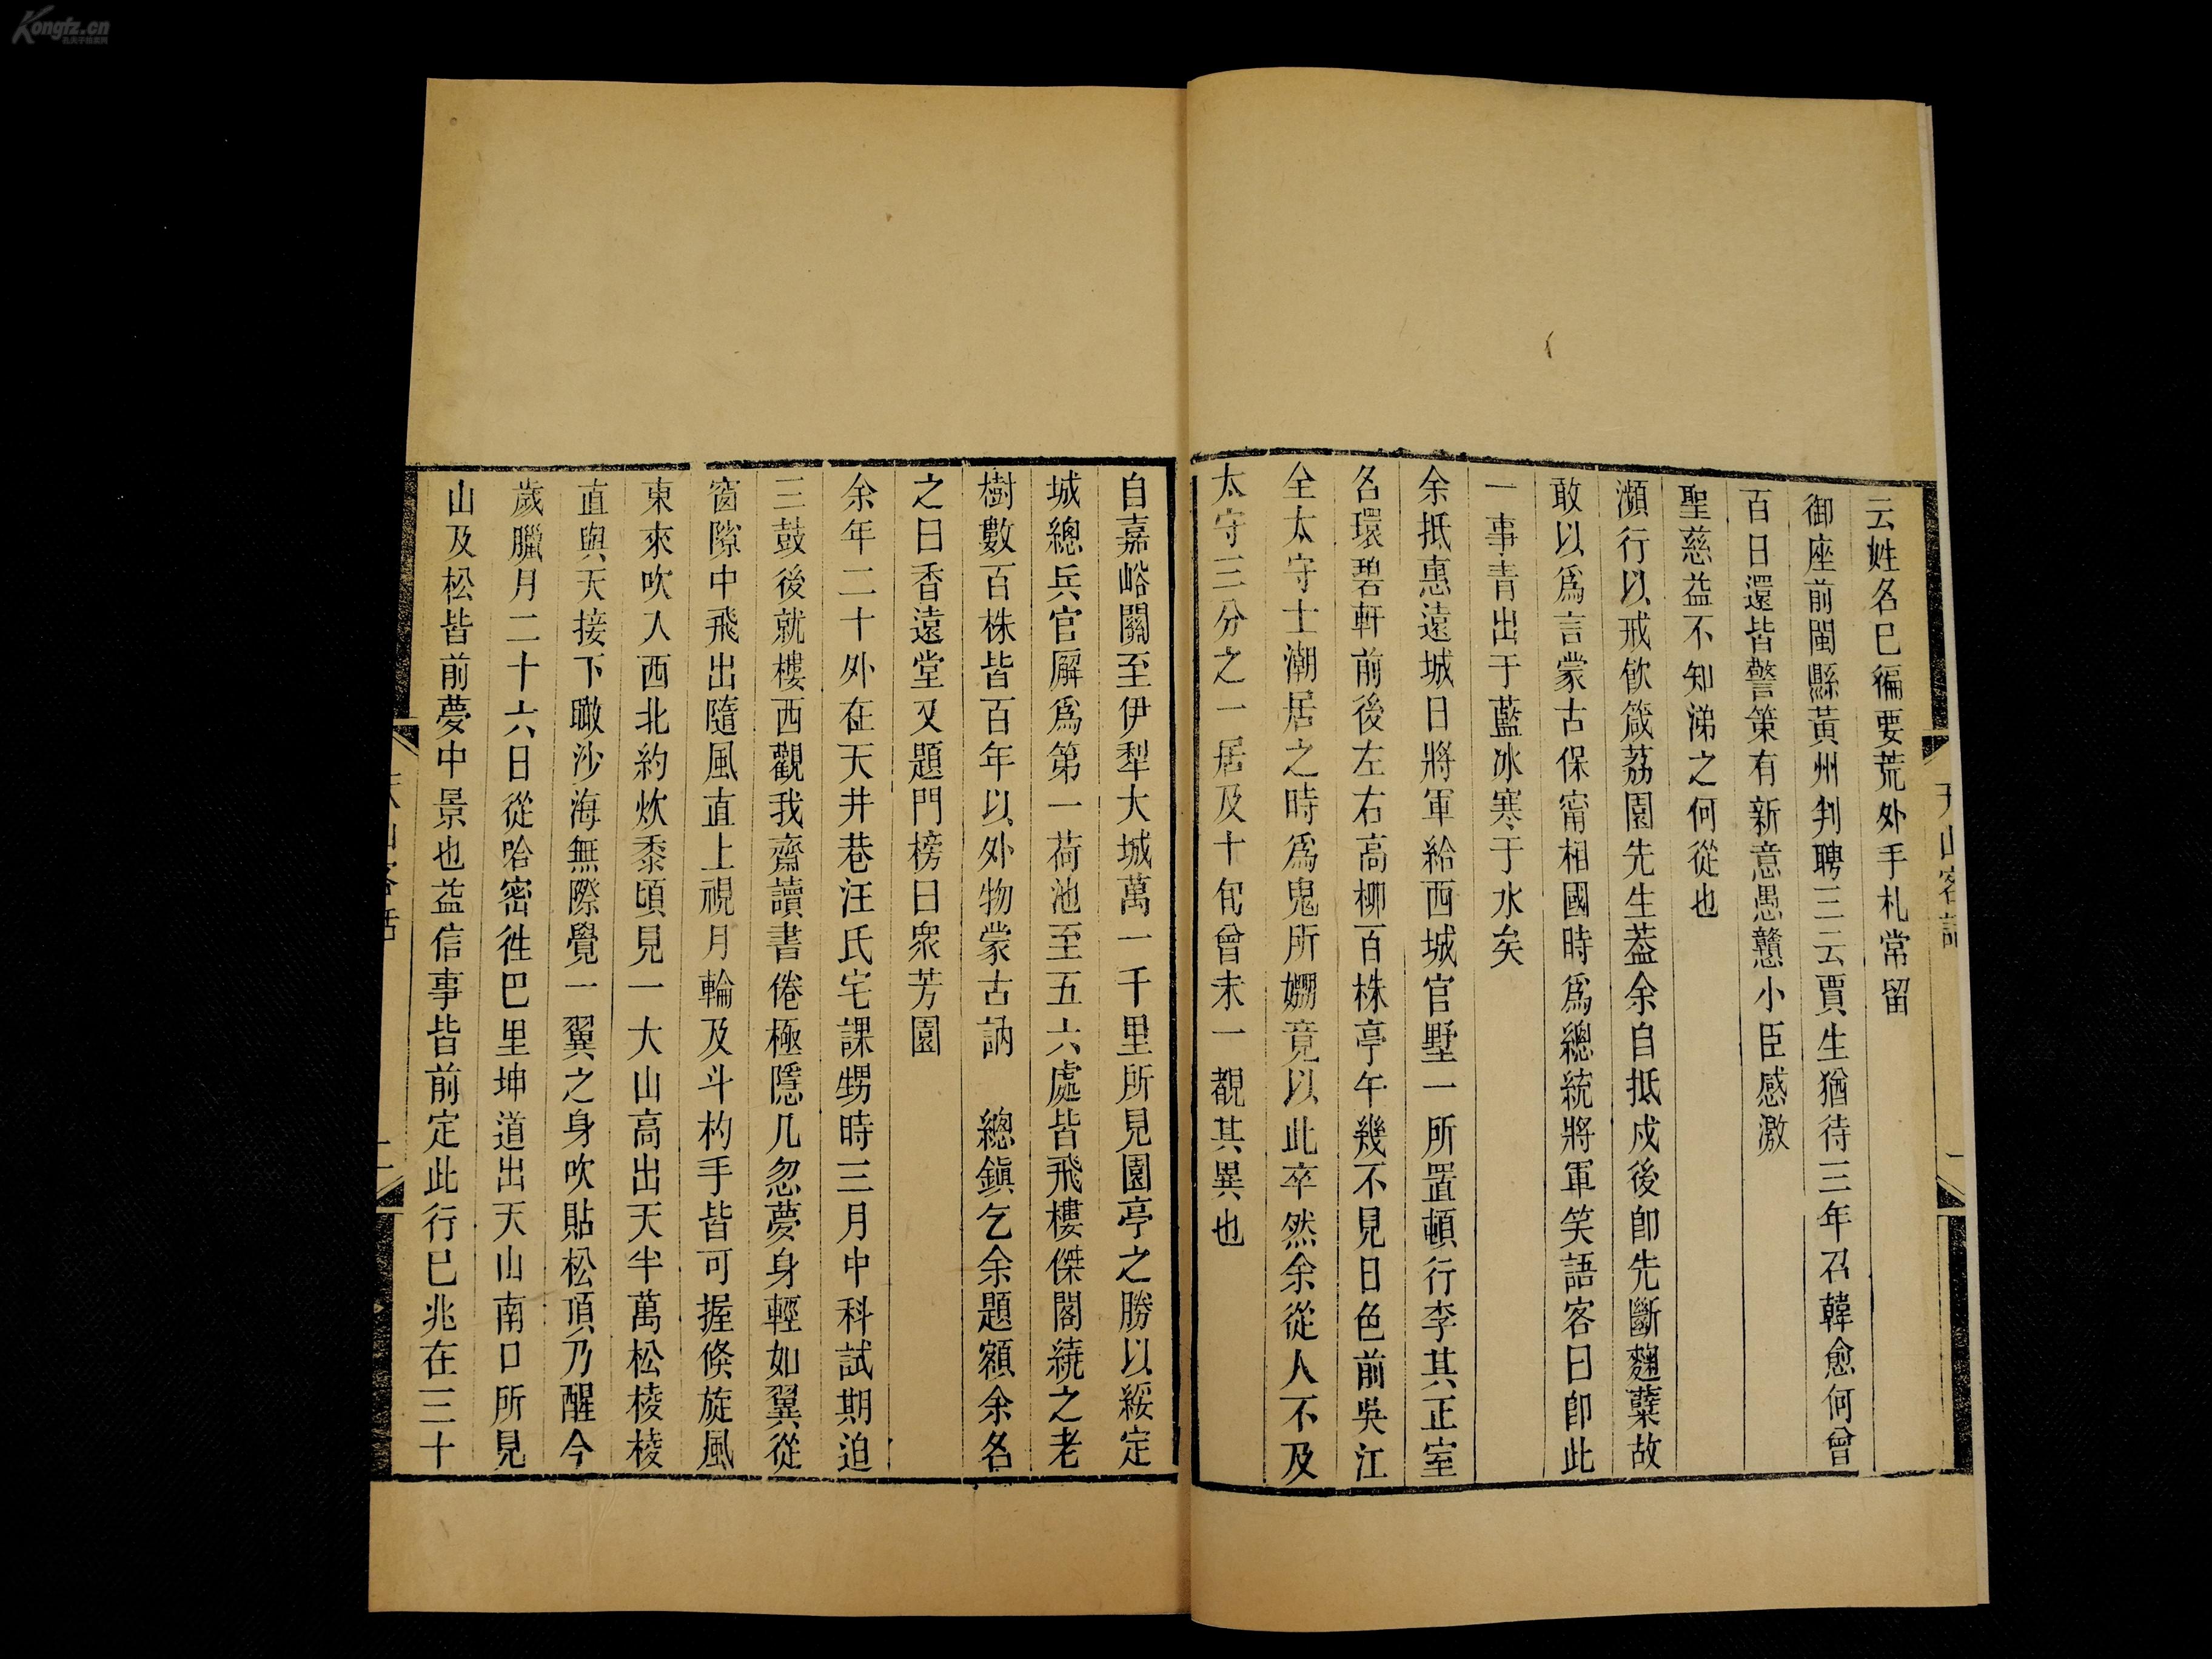 云姓名已徧要荒外手札常留
御座前閩縣黃州判聘三云賈生猶待三年召韓愈何曾
百日還皆警策有新意愚戇小臣感激
聖慈益不知涕之何從也
瀕行以戒飮箴荔園先生葢余自抵戍後卽先斷麴糵故
敢以爲言蒙古保甯相國時爲總統將軍笑語客曰卽此
一事靑出于藍冰寒于水矣
余抵惠遠城日將軍給西城官墅一所置頓行李其正室
名環碧軒前後左右高柳百株亭午幾不見日色前吳江
全太守士潮居之時爲鬼所嬲竟以此卒然余從人不及
太守三分之一居及十旬曾未一覩其異也
天山客話
自嘉峪關至伊犁大城萬一千里所見園亭之勝以綏定
城總兵官廨爲第一荷池至五六處皆飛樓傑閣繞之老
樹數百株皆百年以外物蒙古訥 總鎭乞余題額余名
之曰香遠堂又題門榜曰衆芳園
余年二十外在天井巷汪氏宅課甥時三月中科試期迫
三鼓後就樓西觀我齋讀書倦極隱几忽夢身輕如翼從
窗隙中飛出隨風直上視月輪及斗杓手皆可握倐旋風
東來吹入西北約炊黍頃見一大山高出天半萬松棱棱
直與天接下瞰沙海無際覺一翼之身吹貼松頂乃醒今
歲臘月二十六日從哈密徃巴里坤道出天山南口所見
山及松皆前夢中景也益信事皆前定此行已兆在三十
天山客話
Kongfz.cn